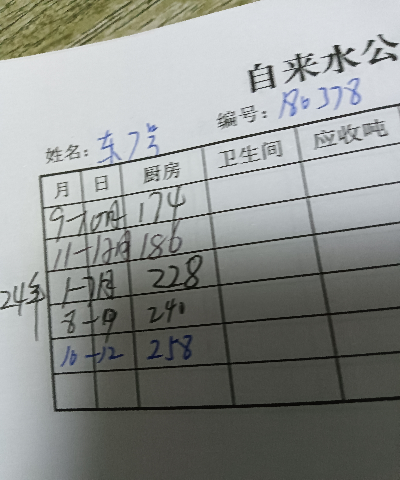 自来水公
姓名：东7号 编号：180378
月 日 厨房 卫生间 应收吨
9-10月 174
11-12月 186
24年 1-7月 228
8-9 240
10-12 258